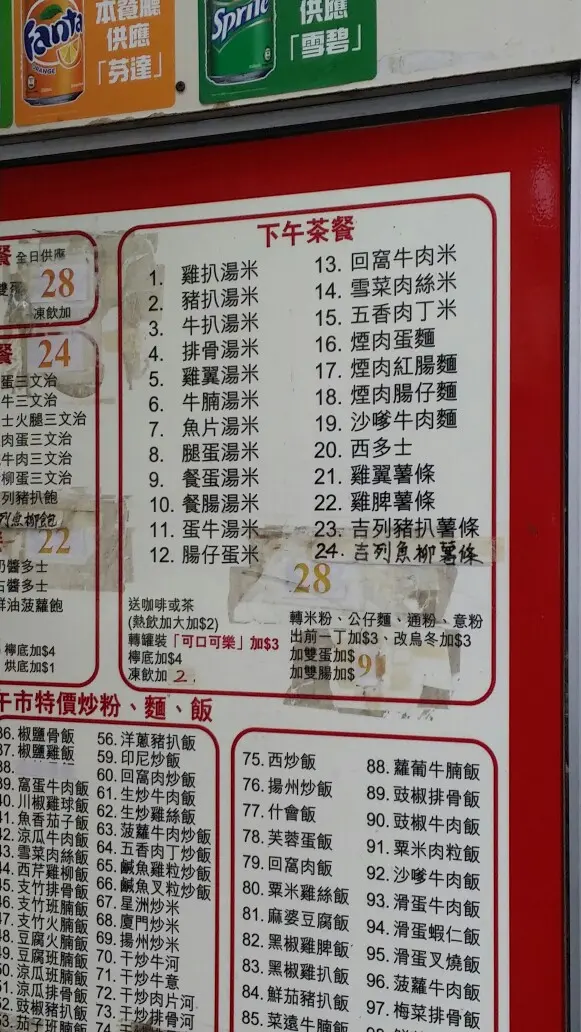 Fanta
ORANGE
本餐廳
供應
「芬達」
Sprite
供應
「雪碧」
餐 全日供應
28
凍飲加
餐 24
蛋三文治
牛三文治
士火腿三文治
肉蛋三文治
牛肉三文治
柳蛋三文治
列豬扒飽
列魚柳飽
22
奶醬多士
占醬多士
鮮油菠蘿飽
檸底加$4
烘底加$1
下午茶餐
1. 雞扒湯米
2. 豬扒湯米
3. 牛扒湯米
4. 排骨湯米
5. 雞翼湯米
6. 牛腩湯米
7. 魚片湯米
8. 腿蛋湯米
9. 餐蛋湯米
10. 餐腸湯米
11. 蛋牛湯米
12. 腸仔蛋米
13. 回窩牛肉米
14. 雪菜肉絲米
15. 五香肉丁米
16. 煙肉蛋麵
17. 煙肉紅腸麵
18. 煙肉腸仔麵
19. 沙嗲牛肉麵
20. 西多士
21. 雞翼薯條
22. 雞脾薯條
23. 吉列豬扒薯條
24. 吉列魚柳薯條
28
送咖啡或茶
(熱飲加大加$2)
轉罐裝「可口可樂」加$3
檸底加$4
凍飲加 2.
轉米粉、公仔麵、通粉、意粉
出前一丁加$3、改烏冬加$3
加雙蛋加$
加雙腸加$ 9
午市特價炒粉、麵、飯
36. 椒鹽骨飯
37. 椒鹽雞飯
38.
39. 窩蛋牛肉飯
40. 川椒雞球飯
41. 魚香茄子飯
42. 涼瓜牛肉飯
43. 雪菜肉絲飯
44. 西芹雞柳飯
45. 支竹排骨飯
46. 支竹班腩飯
47. 支竹火腩飯
48. 豆腐火腩飯
49. 豆腐班腩飯
50. 涼瓜班腩飯
51. 涼瓜排骨飯
52. 豉椒豬扒飯
53. 茄子班腩飯
56. 洋蔥豬扒飯
59. 印尼炒飯
60. 回窩肉炒飯
61. 生炒牛肉飯
62. 生炒雞絲飯
63. 菠蘿牛肉炒飯
64. 五香肉丁炒飯
65. 鹹魚雞粒炒飯
66. 鹹魚叉粒炒飯
67. 星洲炒米
68. 廈門炒米
69. 揚州炒米
70. 干炒牛河
71. 干炒牛意
72. 干炒肉片河
73. 干炒排骨河
74.
75. 西炒飯
76. 揚州炒飯
77. 什會飯
78. 芙蓉蛋飯
79. 回窩肉飯
80. 粟米雞絲飯
81. 麻婆豆腐飯
82. 黑椒雞脾飯
83. 黑椒雞扒飯
84. 鮮茄豬扒飯
85. 菜遠牛腩飯
88. 蘿蔔牛腩飯
89. 豉椒排骨飯
90. 豉椒牛肉飯
91. 粟米肉粒飯
92. 沙嗲牛肉飯
93. 滑蛋牛肉飯
94. 滑蛋蝦仁飯
95. 滑蛋叉燒飯
96. 菠蘿牛肉飯
97. 梅菜排骨飯